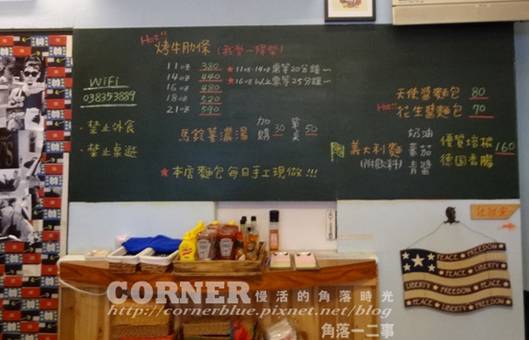 Hot!! 烤牛肋條
11oz 380
14oz 440
16oz 480
18oz 520
21oz 590
★11oz.14oz 需等20分鐘~
★16oz以上需等25分鐘~
WiFi
038353889
·禁止外食
·禁止桌遊
馬鈴薯濃湯 加購30 單點50
★本店麵包每日手工現做!!!
天使醬麵包 80
Hot!! 花生醬麵包 70
義大利麵
(附飲料)
奶油
蕃茄
青醬
優質培根
德国香腸
160
PEACE FREEDOM
PEACE LIBERTY
LIBERTY FREEDOM
PEACE LIBERTY
CORNER 慢活的角落時光
http://cornerblue.pixnet.net/blog
角落一二事